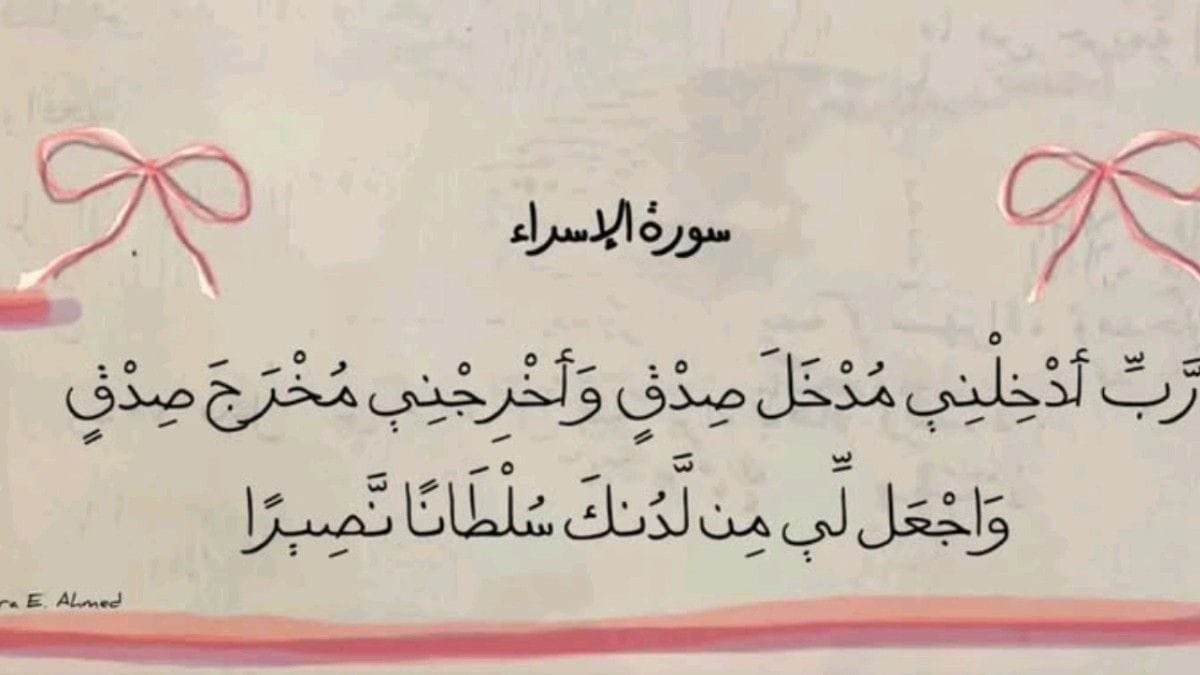 سورة الإسراء
رَّبِّ أَدْخِلْنِي مُدْخَلَ صِدْقٍ وَأَخْرِجْنِي مُخْرَجَ صِدْقٍ
وَاجْعَل لِّي مِن لَّدُنكَ سُلْطَانًا نَّصِيرًا
E. Ahmed